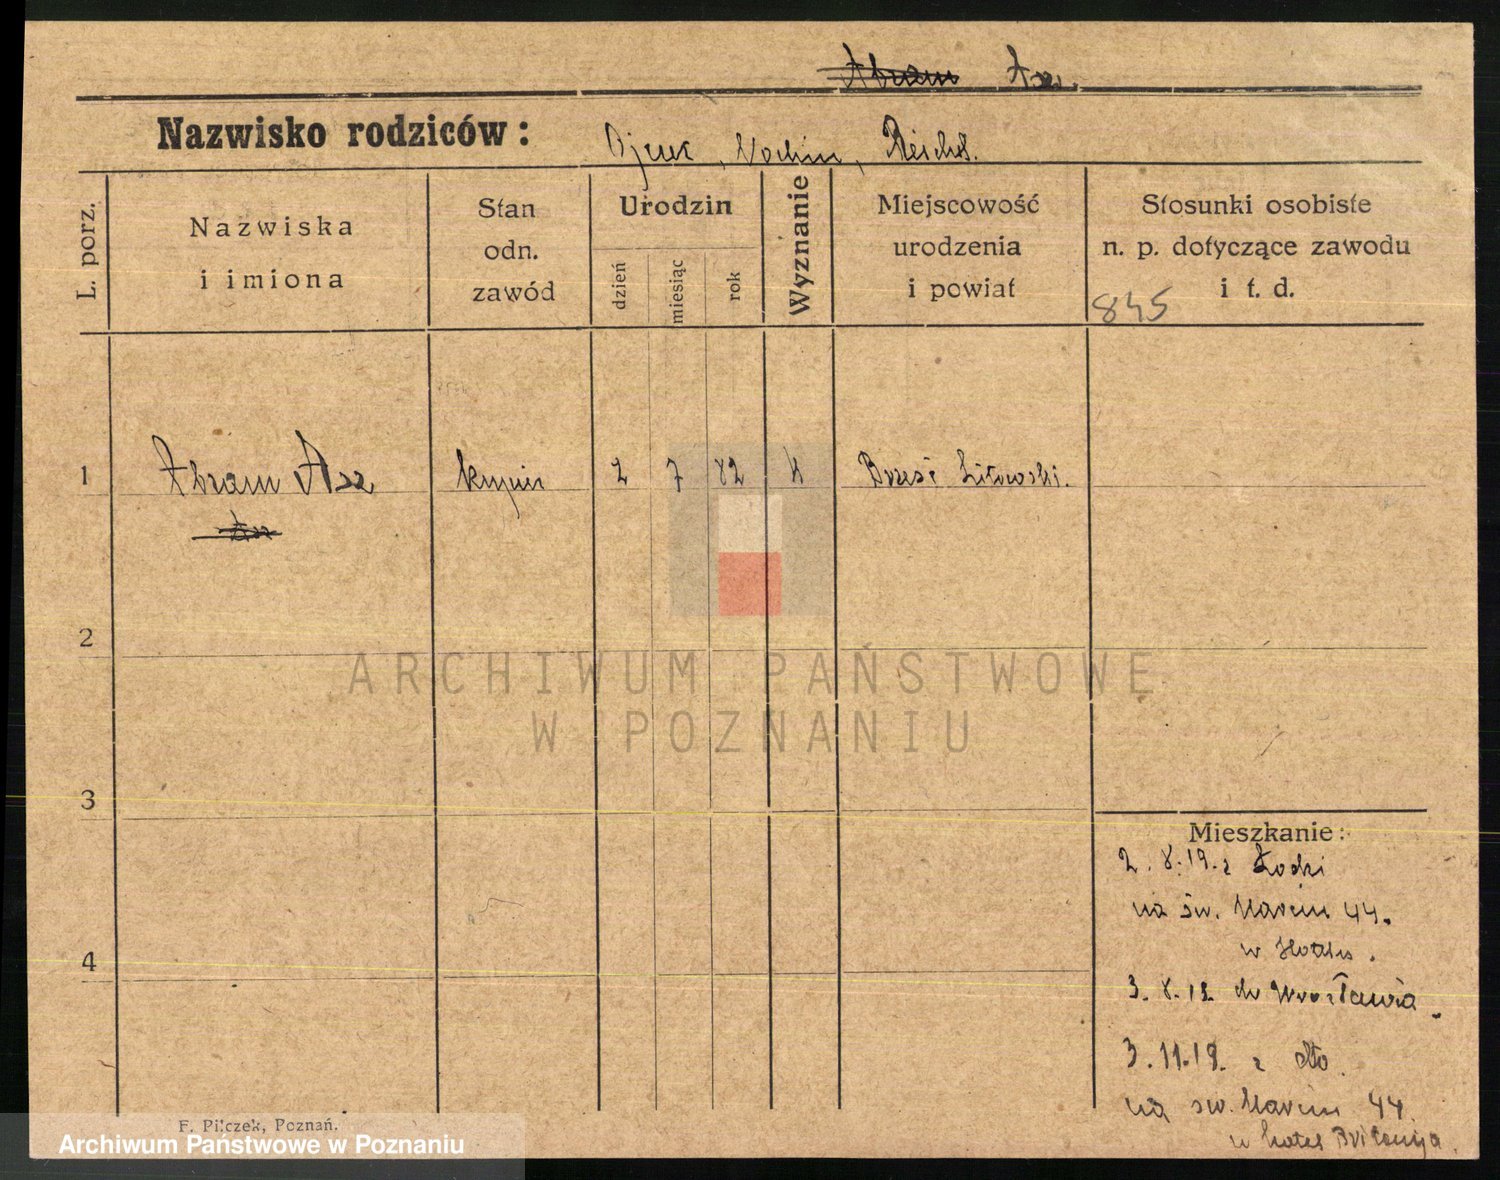 Abram Asz.
Nazwisko rodziców: Ojciec, Nochim, Reichel.
L. porz.
Nazwiska
i imiona
Stan
odn.
zawód
Urodzin
dzień
miesiąc
rok
Wyznanie
Miejscowość
urodzenia
i powiat
Stosunki osobiste
n. p. dotyczące zawodu
i t. d.
845
1 Abram Asz kupiec 2 7 82 Brześć Litowski.
Asz
2
ARCHIWUM PAŃSTWOWE
W POZNANIU
3
Mieszkanie:
2. 8. 19. z Łodzi
na św. Marcin 44.
w Hotelu.
4
3. 8. 19. do Wrocławia.
3. 11. 19. z dto.
na św. Marcin 44
w hotel Britanija.
F. Pilczek, Poznań.
Archiwum Państwowe w Poznaniu